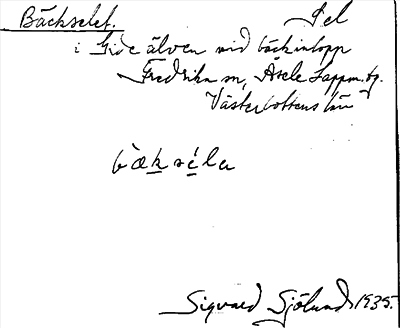 Bäckselet. Sel
i Gide älven vid bäckinlopp
Fredrika sn, Åsele Lappm. tg.
Västerbottens län
bæksela
Sigvard Sjölund 1935.